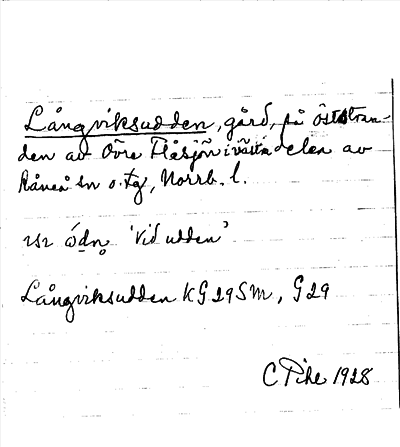 Långviksudden, gård, på öststran-
den av Övre Flåsjön i västra delen av
Råneå sn o. tg, Norrb. l.
'Vid udden'
Långviksudden KG29SM, G29
C Pihl 1928